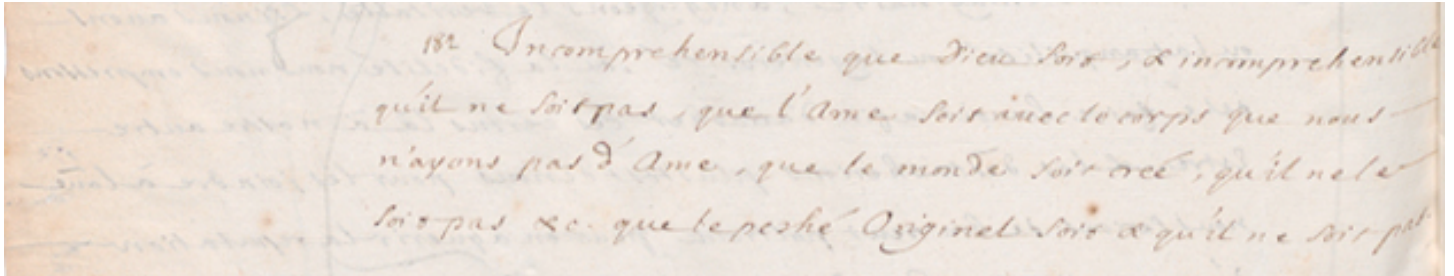 182 Incomprehensible que Dieu soit, & incomprehensible
qu'il ne soit pas, que l'Ame soit avec le corps que nous
n'ayons pas d'Ame, que le monde soit creé, qu'il ne le
soit pas &c. que le peché Originel soit & qu'il ne soit pas